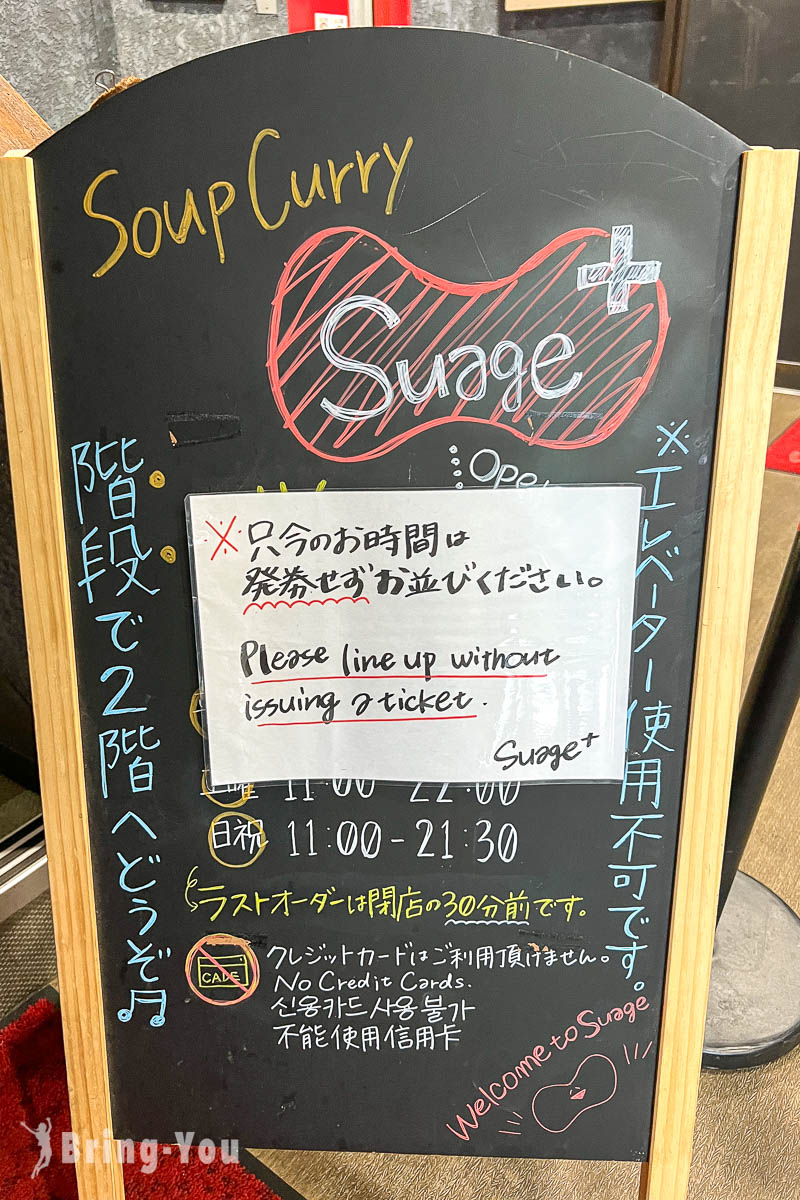 Soup Curry
Suage+
Open
※エレベーター使用不可です。
階段で2階へどうぞ♫
※只今のお時間は
発券せずお並びください。
Please line up without
issuing a ticket.
Suage+
11:00 22:00
日祝 11:00-21:30
ラストオーダーは閉店の30分前です。
CARD
クレジットカードはご利用頂けません。
No Credit Cards.
신용카드 사용불가
不能使用信用卡
Welcome to Suage
Bring-You